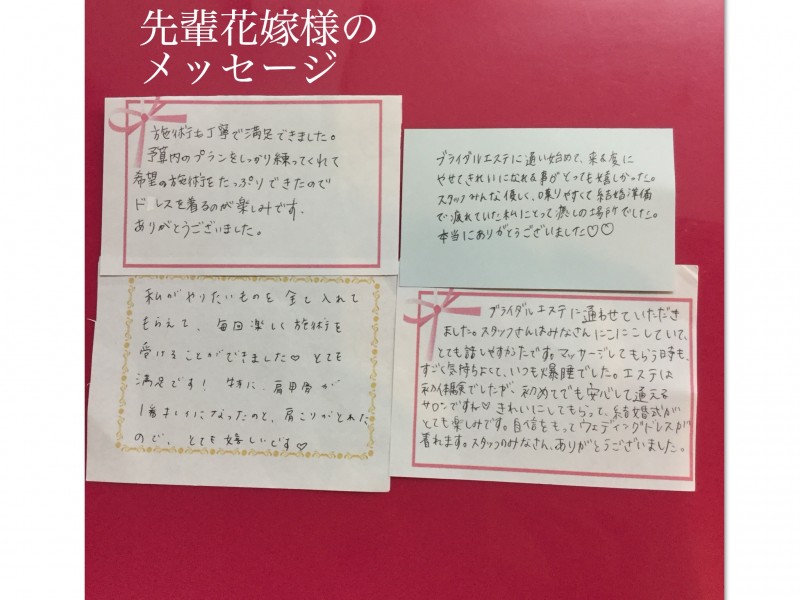 先輩花嫁様の
メッセージ
施術も丁寧で満足できました。
予算内のプランをしっかり練ってくれて
希望の施術をたっぷりできたので
ドレスを着るのが楽しみです。
ありがとうございました。
ブライダルエステに通い始めて、来る度に
やせてきれいになれる事がとっても嬉しかった。
スタッフみんな優しく、喋りやすくて結婚準備
で疲れていた私にとって癒しの場所でした。
本当にありがとうございました♡♡
私がやりたいものを全し入れて
もらえて、毎回楽しく施術を
受けることができました♡とても
満足です！特に、肩甲骨が
1番キレイになったのと、肩こりがとれた
ので、とても嬉しいです♡
ブライダルエステに通わせていただき
ました。スタッフさんはみなさんにこにこしていて、
とても話しやすかったです。マッサージしてもらう時も、
すごく気持ちよくて、いつも爆睡でした。エステは
初体験でしたが、初めてでも安心して通える
サロンですね♡きれいにしてもらって、結婚式が
とても楽しみです。自信をもってウェディングドレスが
着れます。スタッフのみなさん、ありがとうございました。